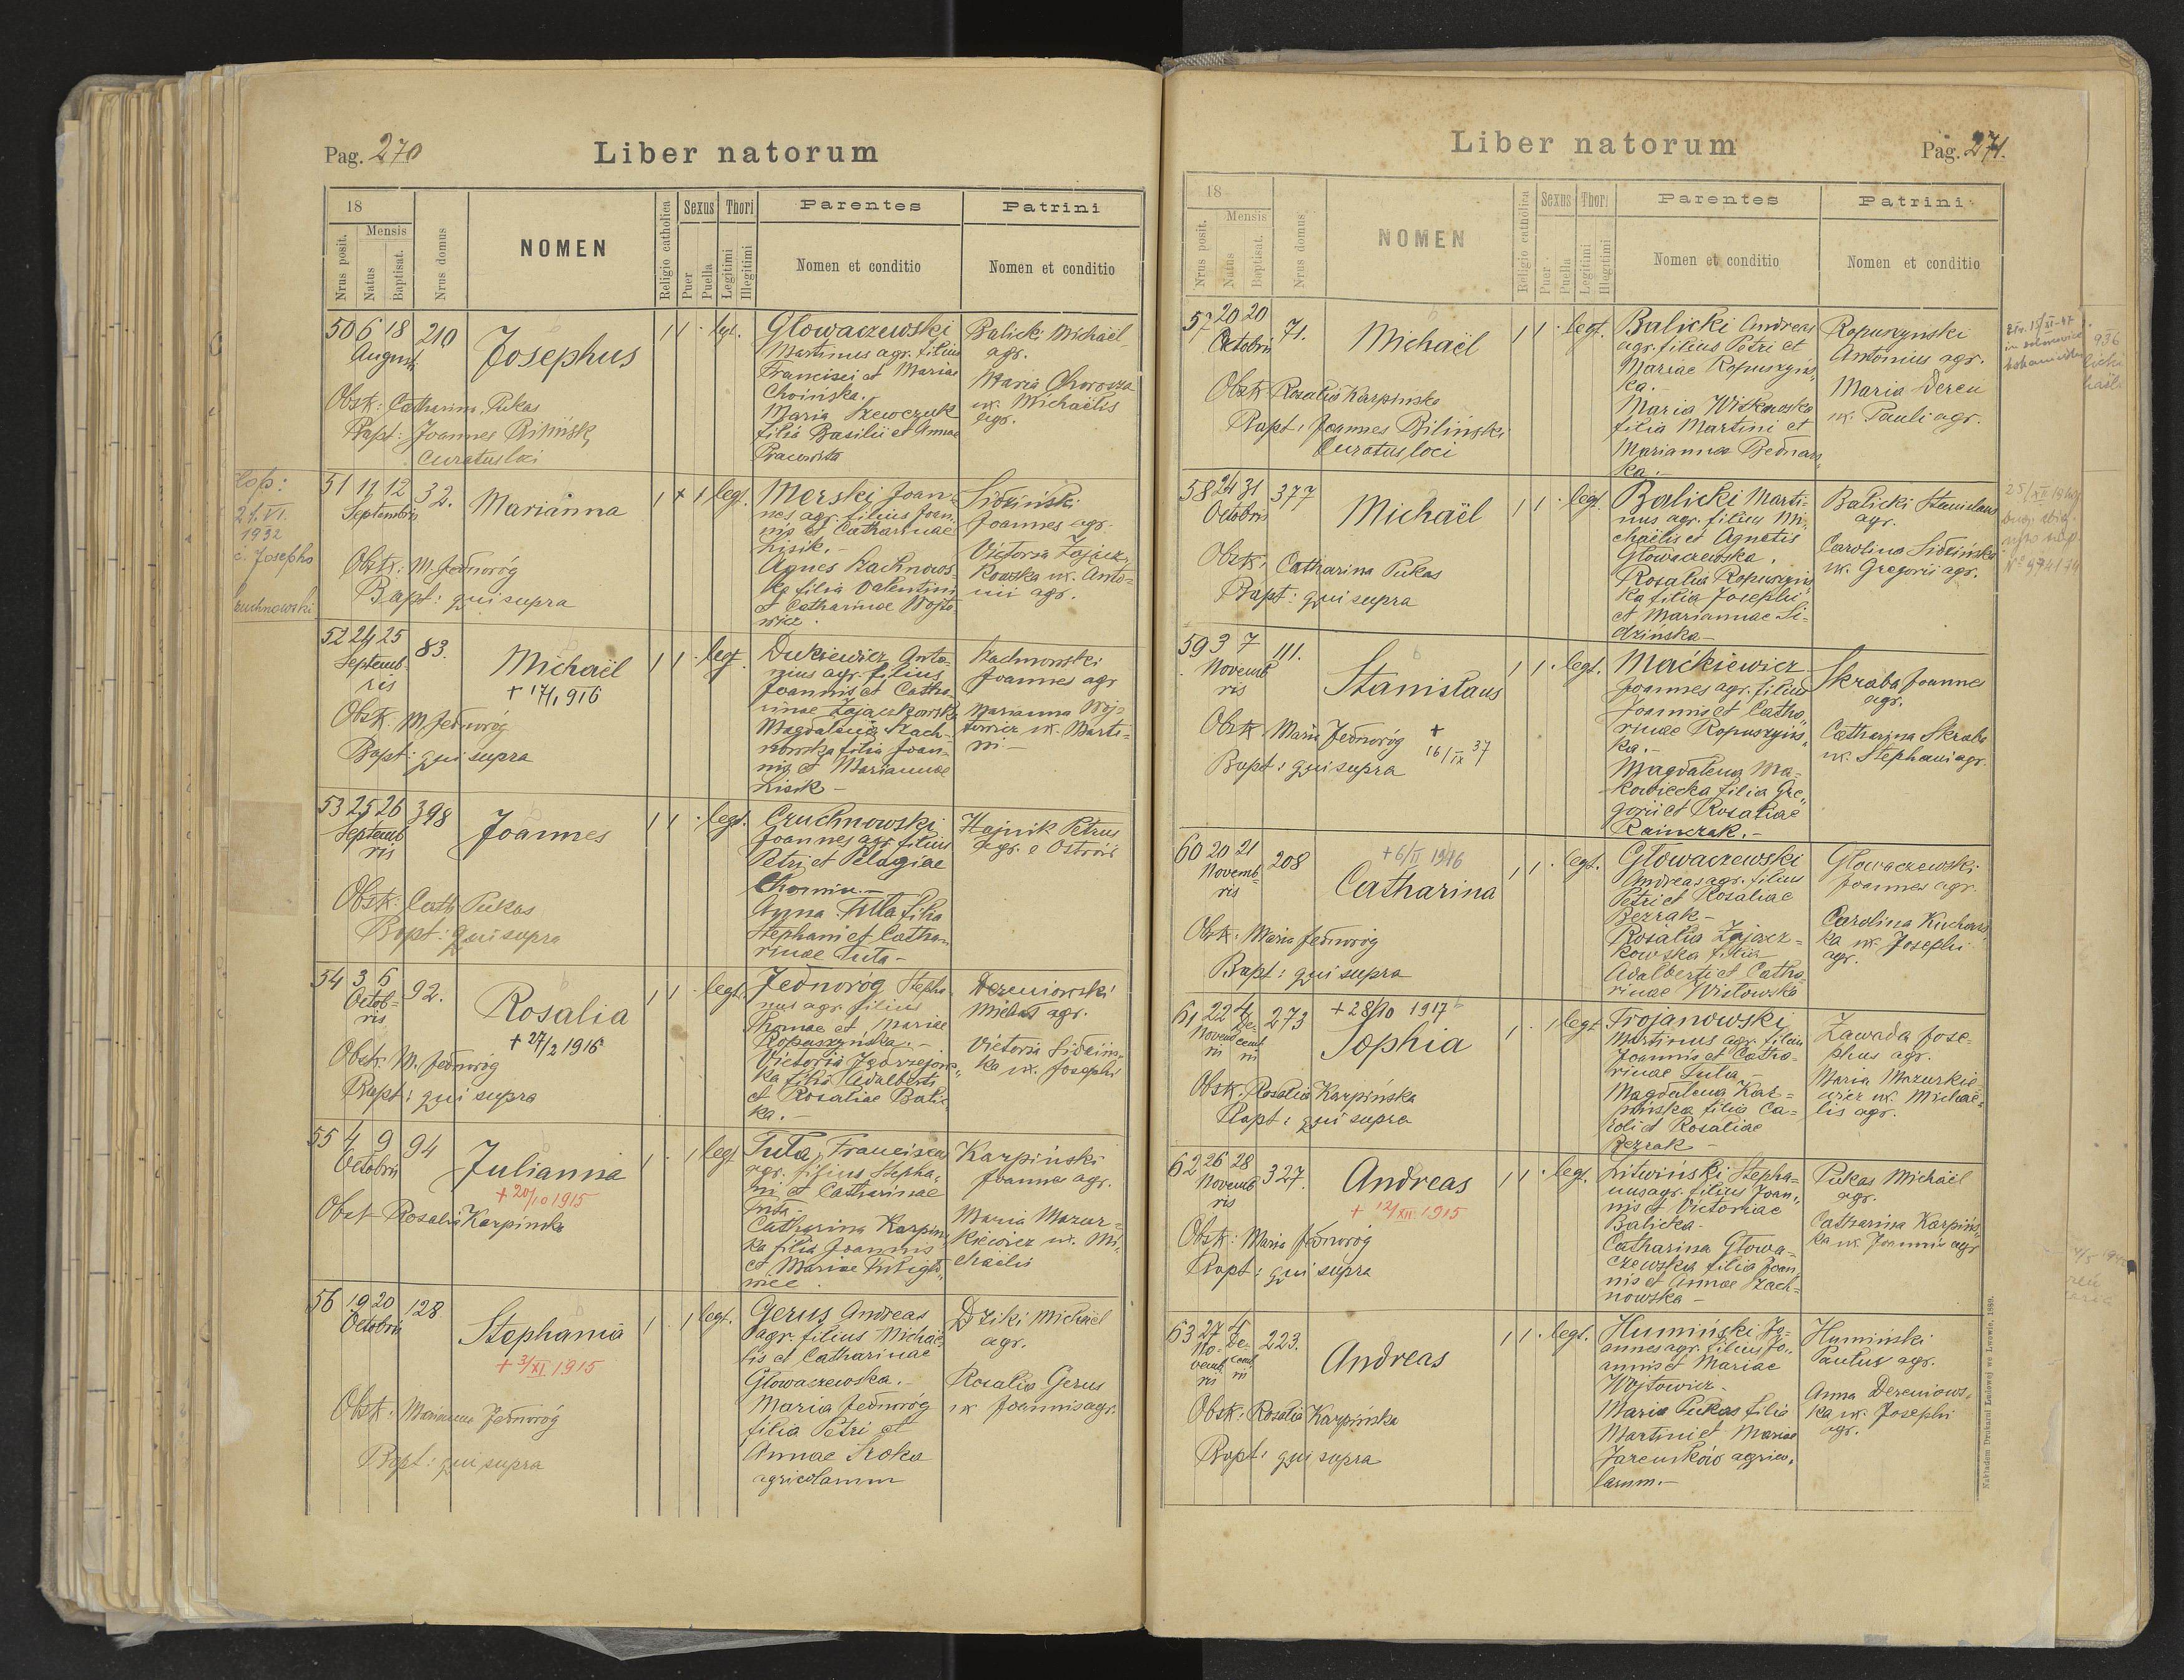 Pag. 270
Liber natorum
18
Nrus posit.
Mensis
Natus
Baptisat.
Nrus domus
NOMEN
Religio catholica
Sexus
Puer
Puella
Thori
Legitimi
Illegitimi
Parentes
Nomen et conditio
Patrini
Nomen et conditio
50 6 18 210
August
Josephus
1 1 · lgt.
Obst: Catharina Pukas
Bapt: Joannes Biliński
Curatus loci
Głowaczewski
Martinus agr. filius
Francisci et Mariae
Choińska.
Maria Szewczuk
filia Basilii et Annae
Balicki Michaël
agr.
Maria Chorosza
ux. Michaëlis
agr.
51 11 12 32.
Septembris
Marianna
1 + 1 legt.
Obst: M. Jednoróg
Bapt: qui supra
Merski Joan-
nes agr. filius Joan-
nis et Catharinae
Lisik.-
Agnes Szachnows-
ka filia Valentini
et Catharinae Wojto-
wicz.
Sidziński
Joannes agr.
Victoria Zającz-
kowska ux. Anto-
nii agr.
21.VI.
1932
c. Josepho
52 24 25 83.
Septemb-
ris
Michaël
+ 17/1 916
1 1 · legt.
Obst. M. Jednoróg
Bapt: qui supra
Dukiewicz Anto-
nius agr. filius
Joannis et Catha-
rinae Zajączkowska
Magdalena Szach-
nowska filia Joan-
nis et Mariannae
Lisik -
Szachnowski
Joannes agr
Marianna Wój-
towicz ux. Marti-
ni -
53 25 26 398
Septemb
ris
Joannes
1 1 · legt.
Obst: Cath Pukas
Bapt: qui supra
Czuchnowski
Joannes agr. filius
Petri et Pelagiae
Chomin.-
Anna Tuta filia
Stephani et Catha-
rinae Tuta -
Hajnik Petrus
agr. e Ostrów
54 3 6 92.
Octob-
ris
Rosalia
+ 27/2 1916
1 1 · legt.
Obst. M. Jednoróg
Bapt: qui supra
Jednoróg Stepha-
nus agr. filius
Thomae et Mariae
Ropuszyńska.-
Victoria Jędrzejows-
ka filia Adalberti
et Rosaliae Balic-
ka.-
Dereniowski
Michaël agr.
Victoria Sidzińs-
ka ux. Josephi
55 4 9 94
Octobris
Julianna
+ 20/10 1915
1 · 1 legt
Obst Rosalia Karpińska
Tuta Franciscus
agr. filius Stepha-
ni et Catharinae
Tuta -
Catharina Karpińs-
ka filia Joannis
et Mariae
Karpiński
Joannes agr.
Maria Mazur-
kiewicz ux. Mi-
chaëlis
56 19 20 128
Octobris
Stephania
+ 3/XI 1915
1 · 1 legt.
Obst: Marianna Jednoróg
Bapt: qui supra
Gerus Andreas
agr. filius Michaë-
lis et Catharinae
Głowaczewska.-
Maria Jednoróg
filia Petri et
Annae Sroka
agricolarum
Dziki Michaël
agr.
Rosalia Gerus
ux Joannis agr.
Liber natorum
Pag. 271.
18
Nrus posit.
Mensis
Natus
Baptisat.
Nrus domus
NOMEN
Religio catholica
Sexus
Puer
Puella
Thori
Legitimi
Illegitimi
Parentes
Nomen et conditio
Patrini
Nomen et conditio
57 20 20 71.
Octobris
Michaël
1 1 · legt.
Obst Rosalia Karpińska
Bapt: Joannes Biliński
Curatus loci
Balicki Andreas
agr. filius Petri et
Mariae Ropuszyńs-
ka.-
Maria Witkowska
filia Martini et
Mariannae Bednars-
ka.-
Ropuszynski
Antonius agr.
Maria Deren
ux. Pauli agr.
936
58 24 31 377
Octobris
Michaël
1 1 · legt.
Obst: Catharina Pukas
Bapt: qui supra
Balicki Marti-
nus agr. filius Mi-
chaëlis et Agnetis
Głowaczewska.
Rosalia Ropuszyńs-
ka filia Josephi
et Mariannae Si-
dzińska -
Balicki Stanislaus
agr.
Carolina Sidzińska
ux. Gregorii agr.
59 3 7 111.
Novemb
ris
Stanislaus
1 1 · legt.
Obst Maria Jednoróg
+ 16/IX 37
Bapt: qui supra
Maćkiewicz
Joannes agr. filius
Joannis et Catha-
rinae Ropuszyńs-
ka.-
Magdalena Ma-
kowiecka filia Gre-
gorii et Rosaliae
Rainczak.-
Skraba Joannes
agr.
Catharina Skraba
ux. Stephani agr.
60 20 21 208
Novemb-
ris
+ 6/II 1946
Catharina
1 1 · legt.
Obst: Maria Jednoróg
Bapt: qui supra
Głowaczewski
Andreas agr. filius
Petri et Rosaliae
Bezrak -
Rosalia Zającz-
kowska filia
Adalberti et Catha-
rinae Wisłowska
Głowaczewski
Joannes agr.
Carolina Kuchars-
ka ux. Josephi
agr.
61 22 4 273
Novemb De-
ris cemb
ris
+ 28/10 1917
Sophia
1 · 1 legt
Obst. Rosalia Karpińska
Bapt: qui supra
Trojanowski
Martinus agr. filius
Joannis et Catha-
rinae Tuta -
Magdalena Kar-
pińska filia Ca-
roli et Rosaliae
Bezrak -
Zawada Jose-
phus agr.
Maria Mazurkie-
wicz ux. Michaë-
lis agr.
62 26 28 327.
Novemb
ris
Andreas
+ 12/XII 1915
1 1 · legt.
Obst: Maria Jednoróg
Bapt: qui supra
Litwiński Stepha-
nus agr. filius Joan-
nis et Victoriae
Balicka -
Catharina Głowa-
czewska filia Joan-
nis et Annae Szach-
nowska -
Pukas Michaël
agr.
Catharina Karpińs-
ka ux. Joannis agr
63 27 4 223.
No- De-
vemb cemb
ris ris
Andreas
1 1 · legt.
Obst: Rosalia Karpińska
Bapt: qui supra
Humiński Jo-
annes agr. filius Jo-
annis et Mariae
Wojtowicz -
Maria Pukas filia
Martini et Mariae
agrico-
larum.-
Humiński
Paulus agr.
Anna Dereniows-
ka ux. Josephi
agr.
Nakładem Drukarni Ludowej we Lwowie, 1889.